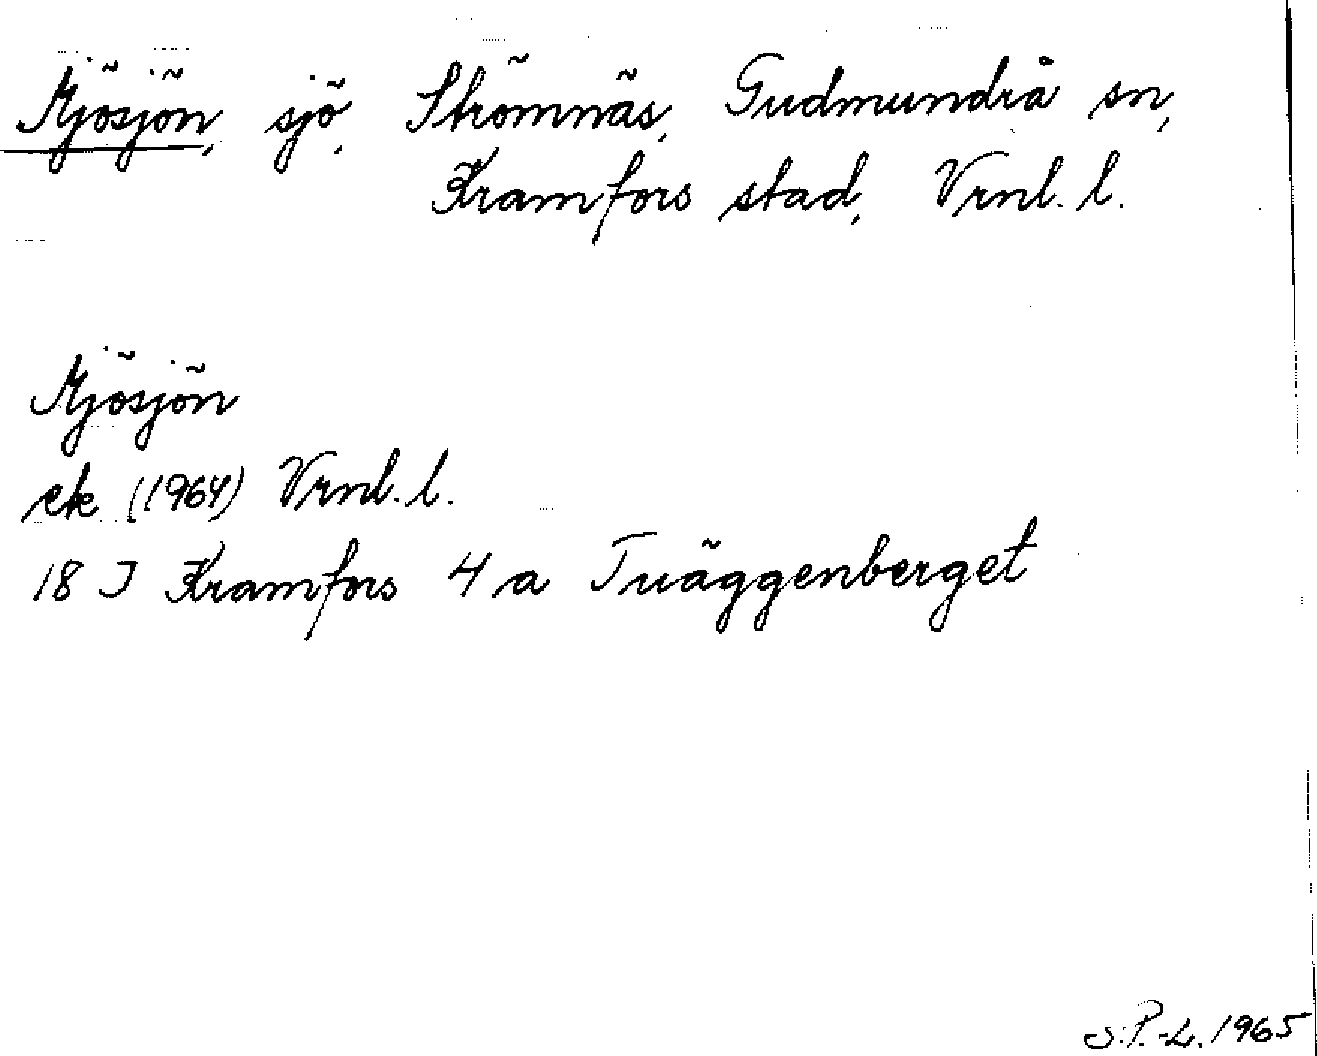 Mjösjön, sjö, Strömnäs, Gudmundrå sn,
Kramfors stad, Vrnl. l.
Mjösjön
ek (1964) Vrnl. l.
18 I Kramfors 4 a Tväggenberget
S.P.-L. 1965